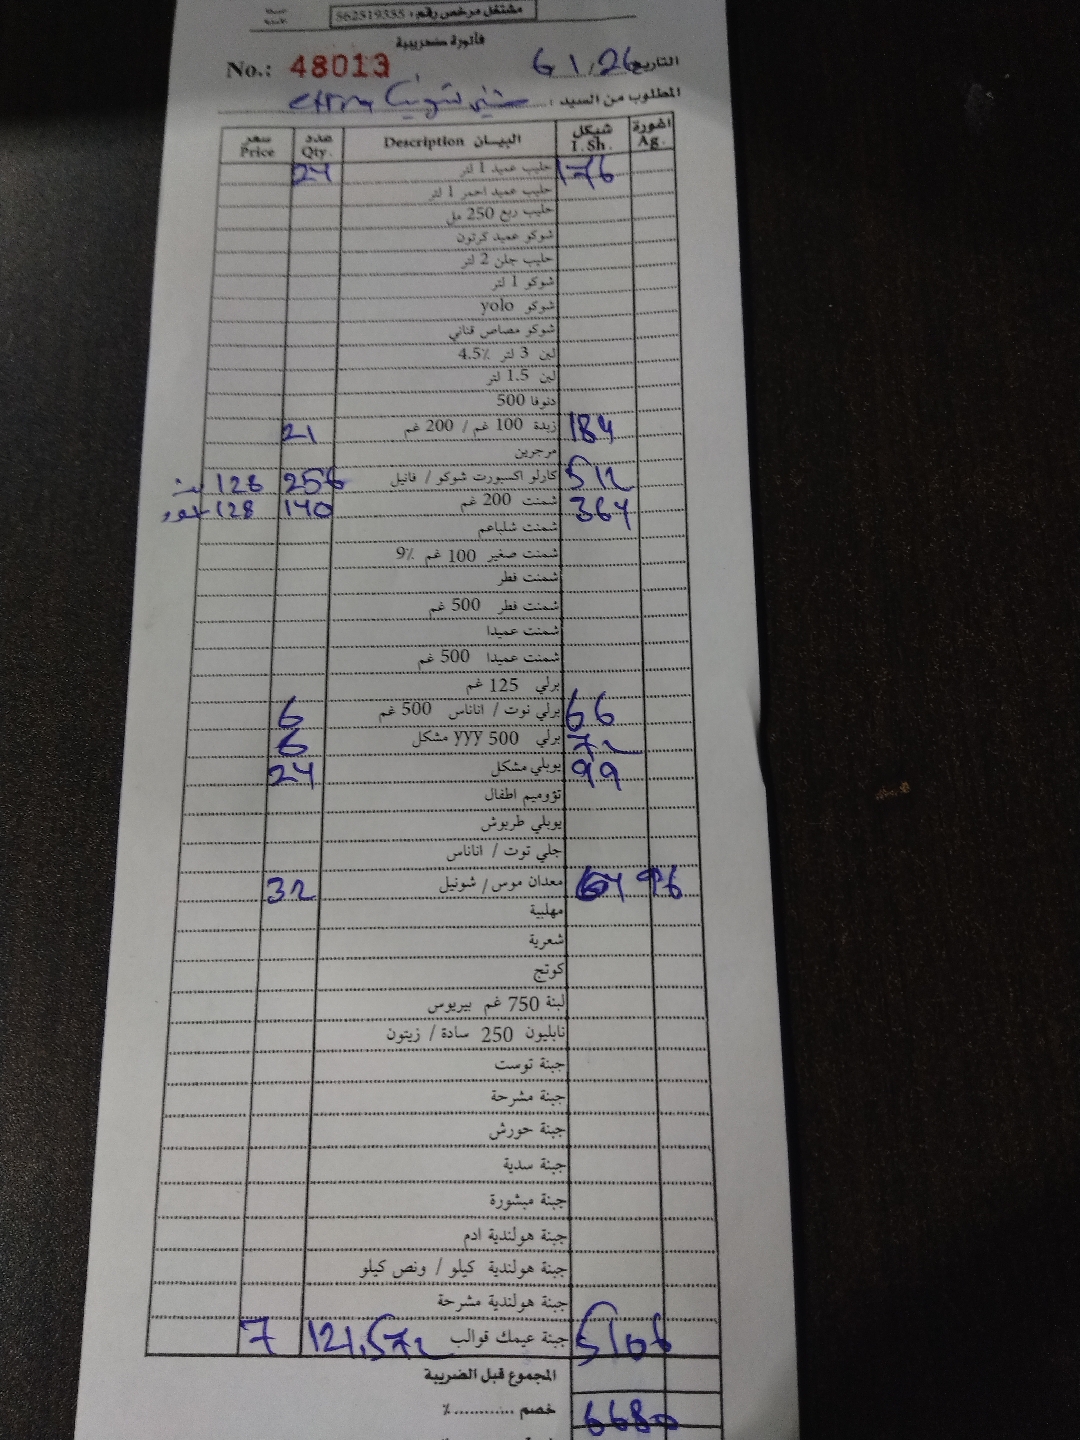 مشتغل مرخص رقم: 562519335
فاتورة ضريبية
No.: 48013 التاريخ 6 / 1 / 26
المطلوب من السيد : extra
سعر Price عدد Qty. البيـــان Description شيكل I. Sh. اغورة Ag.
24 حليب عميد 1 لتر 176
حليب عميد احمر 1 لتر
حليب ربع 250 مل
شوكو عميد كرتون
حليب جلن 2 لتر
شوكو 1 لتر
شوكو yolo
شوكو مصاص قناني
لبن 3 لتر 4.5٪
لبن 1.5 لتر
دنوفا 500
21 زبدة 100 غم / 200 غم 184
مرجرين
128 256 كارلو اكسبورت شوكو / فانيل 512
128 140 شمنت 200 غم 364
شمنت شلباعم
شمنت صغير 100 غم 9٪
شمنت فطر
شمنت فطر 500 غم
شمنت عميدا
شمنت عميدا 500 غم
برلي 125 غم
6 برلي توت / اناناس 500 غم 66
6 برلي 500 yyy مشكل 72
24 يوبلي مشكل 99
تؤوميم اطفال
يوبلي طربوش
جلي توت / اناناس
32 معدان موس / شونيل 64 96
مهلبية
شعرية
كوتج
لبنة 750 غم بيريوس
نابليون 250 سادة / زيتون
جبنة توست
جبنة مشرحة
جبنة حورش
جبنة سدية
جبنة مبشورة
جبنة هولندية ادم
جبنة هولندية كيلو / ونص كيلو
جبنة هولندية مشرحة
7 121,572 جبنة عيمك قوالب 5106
المجموع قبل الضريبة
خصم ............ ٪ 6680